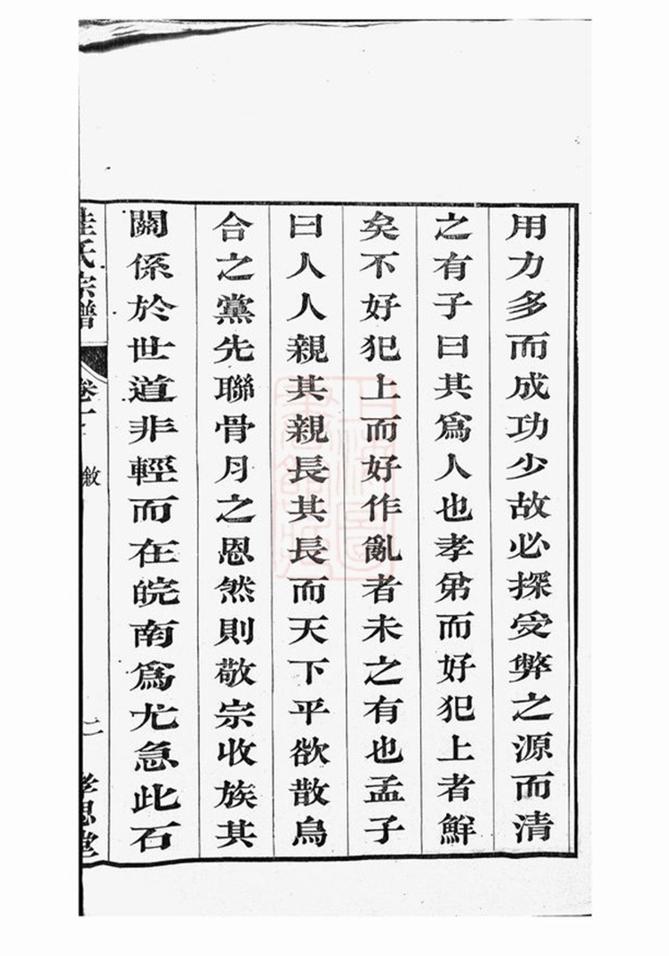 用力多而成功少故必探受弊之源而清
之有子曰其爲人也孝弟而好犯上者鮮
矣不好犯上而好作亂者未之有也孟子
曰人人親其親長其長而天下平欲散烏
合之黨先聯骨月之恩然則敬宗收族其
關係於世道非輕而在皖南爲尤急此石
氏宗譜 卷 敘 二 孝思堂